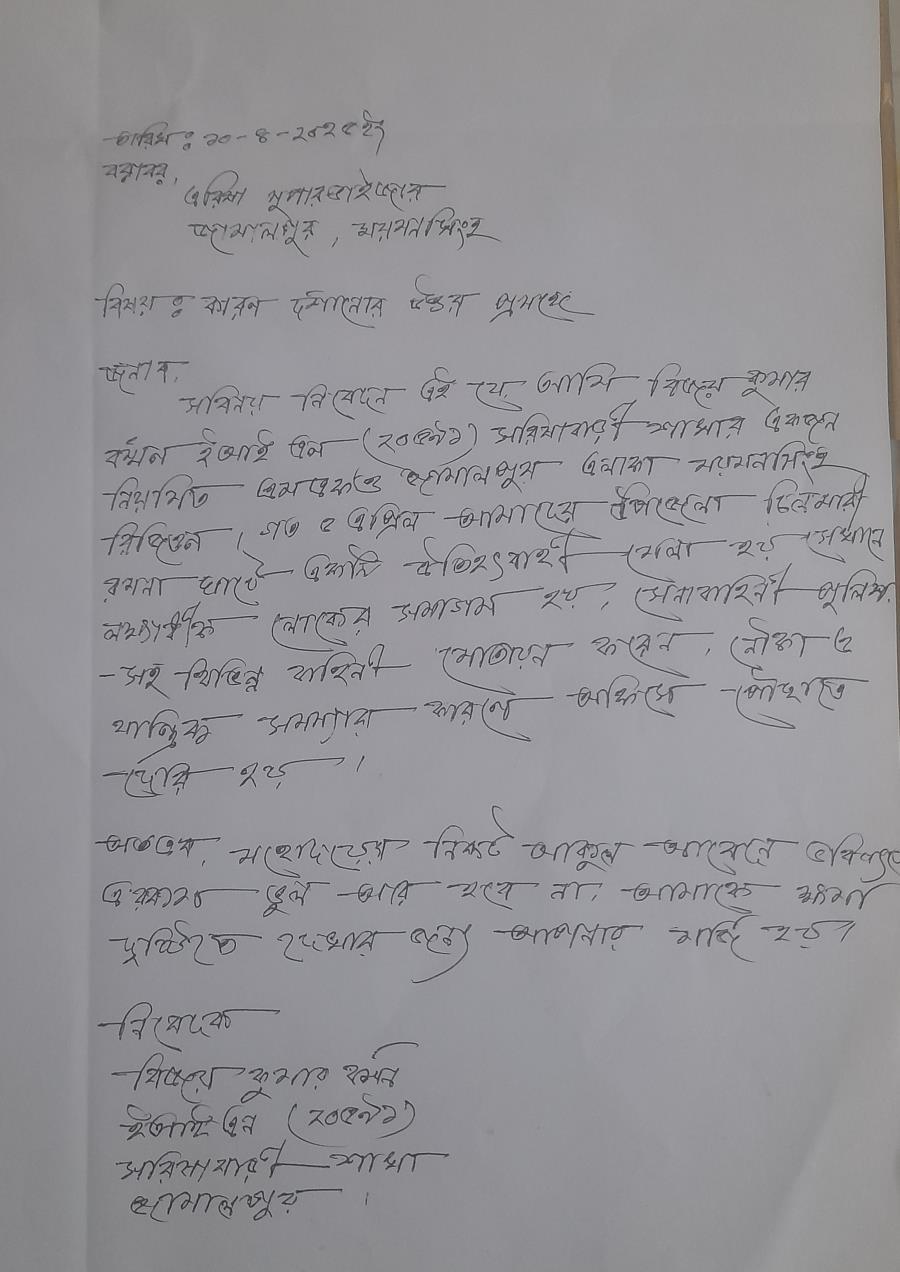 তারিখ : ১০-৪-২০২৫ ইং
বরাবর,
এরিয়া সুপারভাইজার
জামালপুর, ময়মনসিংহ
বিষয় : কারন দর্শানোর উত্তর প্রসঙ্গে
জনাব,
সবিনয় নিবেদন এই যে, আমি বিজয় কুমার
বর্মন ইআই এন (২০৫৯১) সরিষাবাড়ী শাখার একজন
নিয়মিত এমএফও জামালপুর এলাকা ময়মনসিংহ
রিজিওন। গত ৫ এপ্রিল আমাদের উপজেলা চিলমারী
রমনা ঘাটে একটি ঐতিহ্যবাহী মেলা হয় সেখানে
লক্ষাধীক লোকের সমাগম হয়, সেনাবাহিনী পুলিষ
সহ বিভিন্ন বাহিনী মোতায়ন করেন, নৌকা ও
যান্ত্রিক সমস্যার কারণে অফিসে পৌছাতে
দেরি হয়।
অতএব, মহোদয়ের নিকট আকুল আবেদন ভবিষ্যতে
এরকম ভুল আর হবে না, আমাকে ক্ষমা
দৃষ্টিতে দেখার জন্য আপনার মর্জি হয়।
নিবেদক
বিজয় কুমার বর্মন
ইআই এন (২০৫৯১)
সরিষাবাড়ী শাখা
জামালপুর।